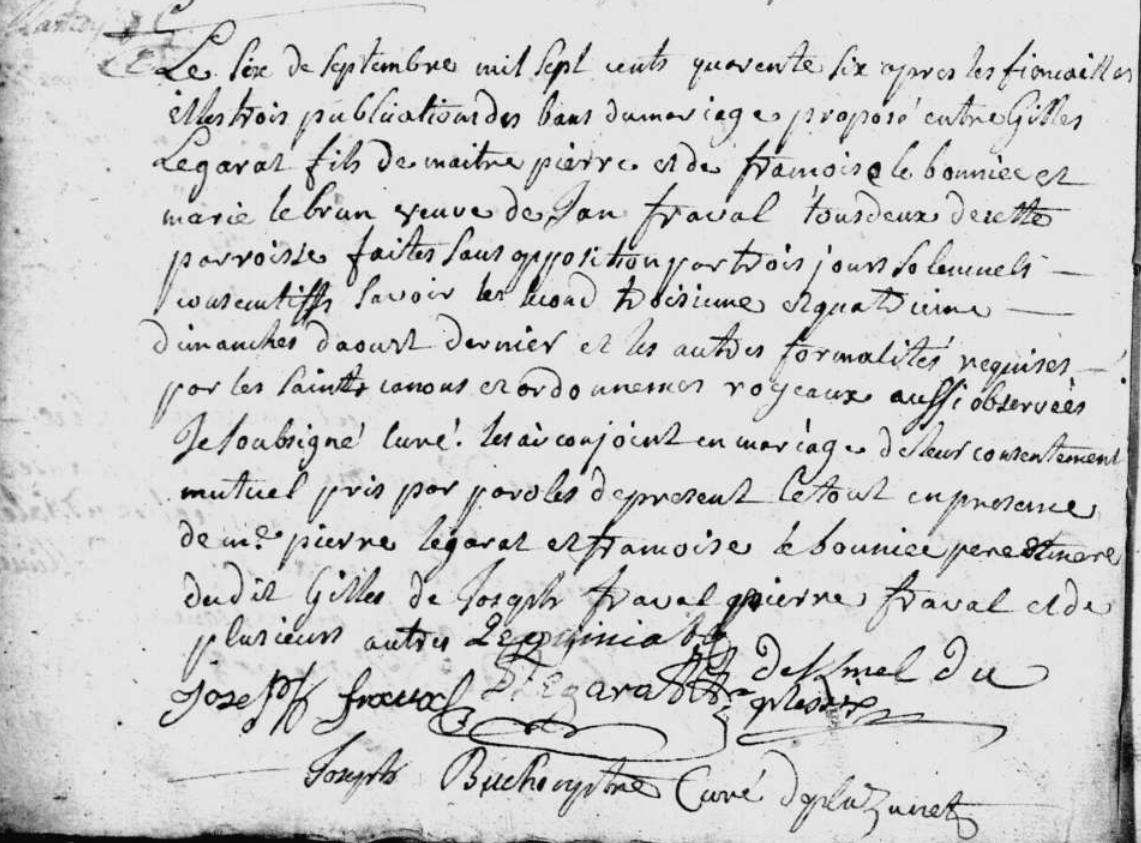 Le six de septembre mil sept cents quarente six apres les fiencailles
et les trois publications des bans du mariage proposé entre Gilles
Legarat fils de maitre pierre et de francoise le bonniec et
marie le brun veuve de Jan fraval tous deux de cette
parroisse faites sans opposition par trois jours solemnels
consecutiffs savoir les second troisieme et quatrieme
dimanches d'aoust dernier et les autres formalités requises
par les saints canons et ordonnences royeaux aussi observées
Je soubsigné Curé. les ai conjoint en mariage de leur consentement
mutuel pris par paroles de present le tout en presence
de me. pierre legarat et francoise le bonniec pere et mere
dudit Gilles de Joseph fraval pierre fraval et de
plusieurs autres
Joseph P Legarat de Kmel du
plessix
Joseph Curé